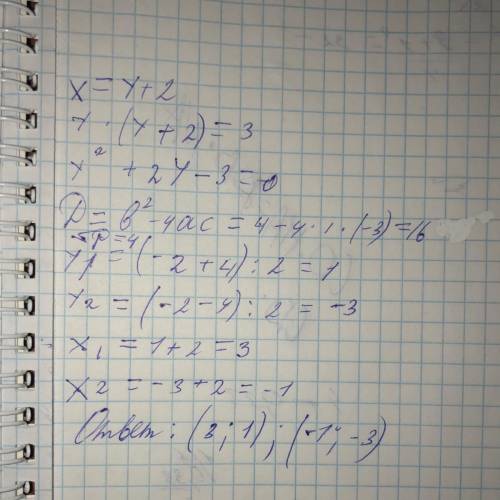 x = y + 2
y · (y + 2) = 3
y² + 2y - 3 = 0
D = b² - 4ac = 4 - 4 · 1 · (-3) = 16
√D = 4
y1 = (-2 + 4) : 2 = 1
y2 = (-2 - 4) : 2 = -3
x1 = 1 + 2 = 3
x2 = -3 + 2 = -1
Ответ: (3; 1); (-1; -3)